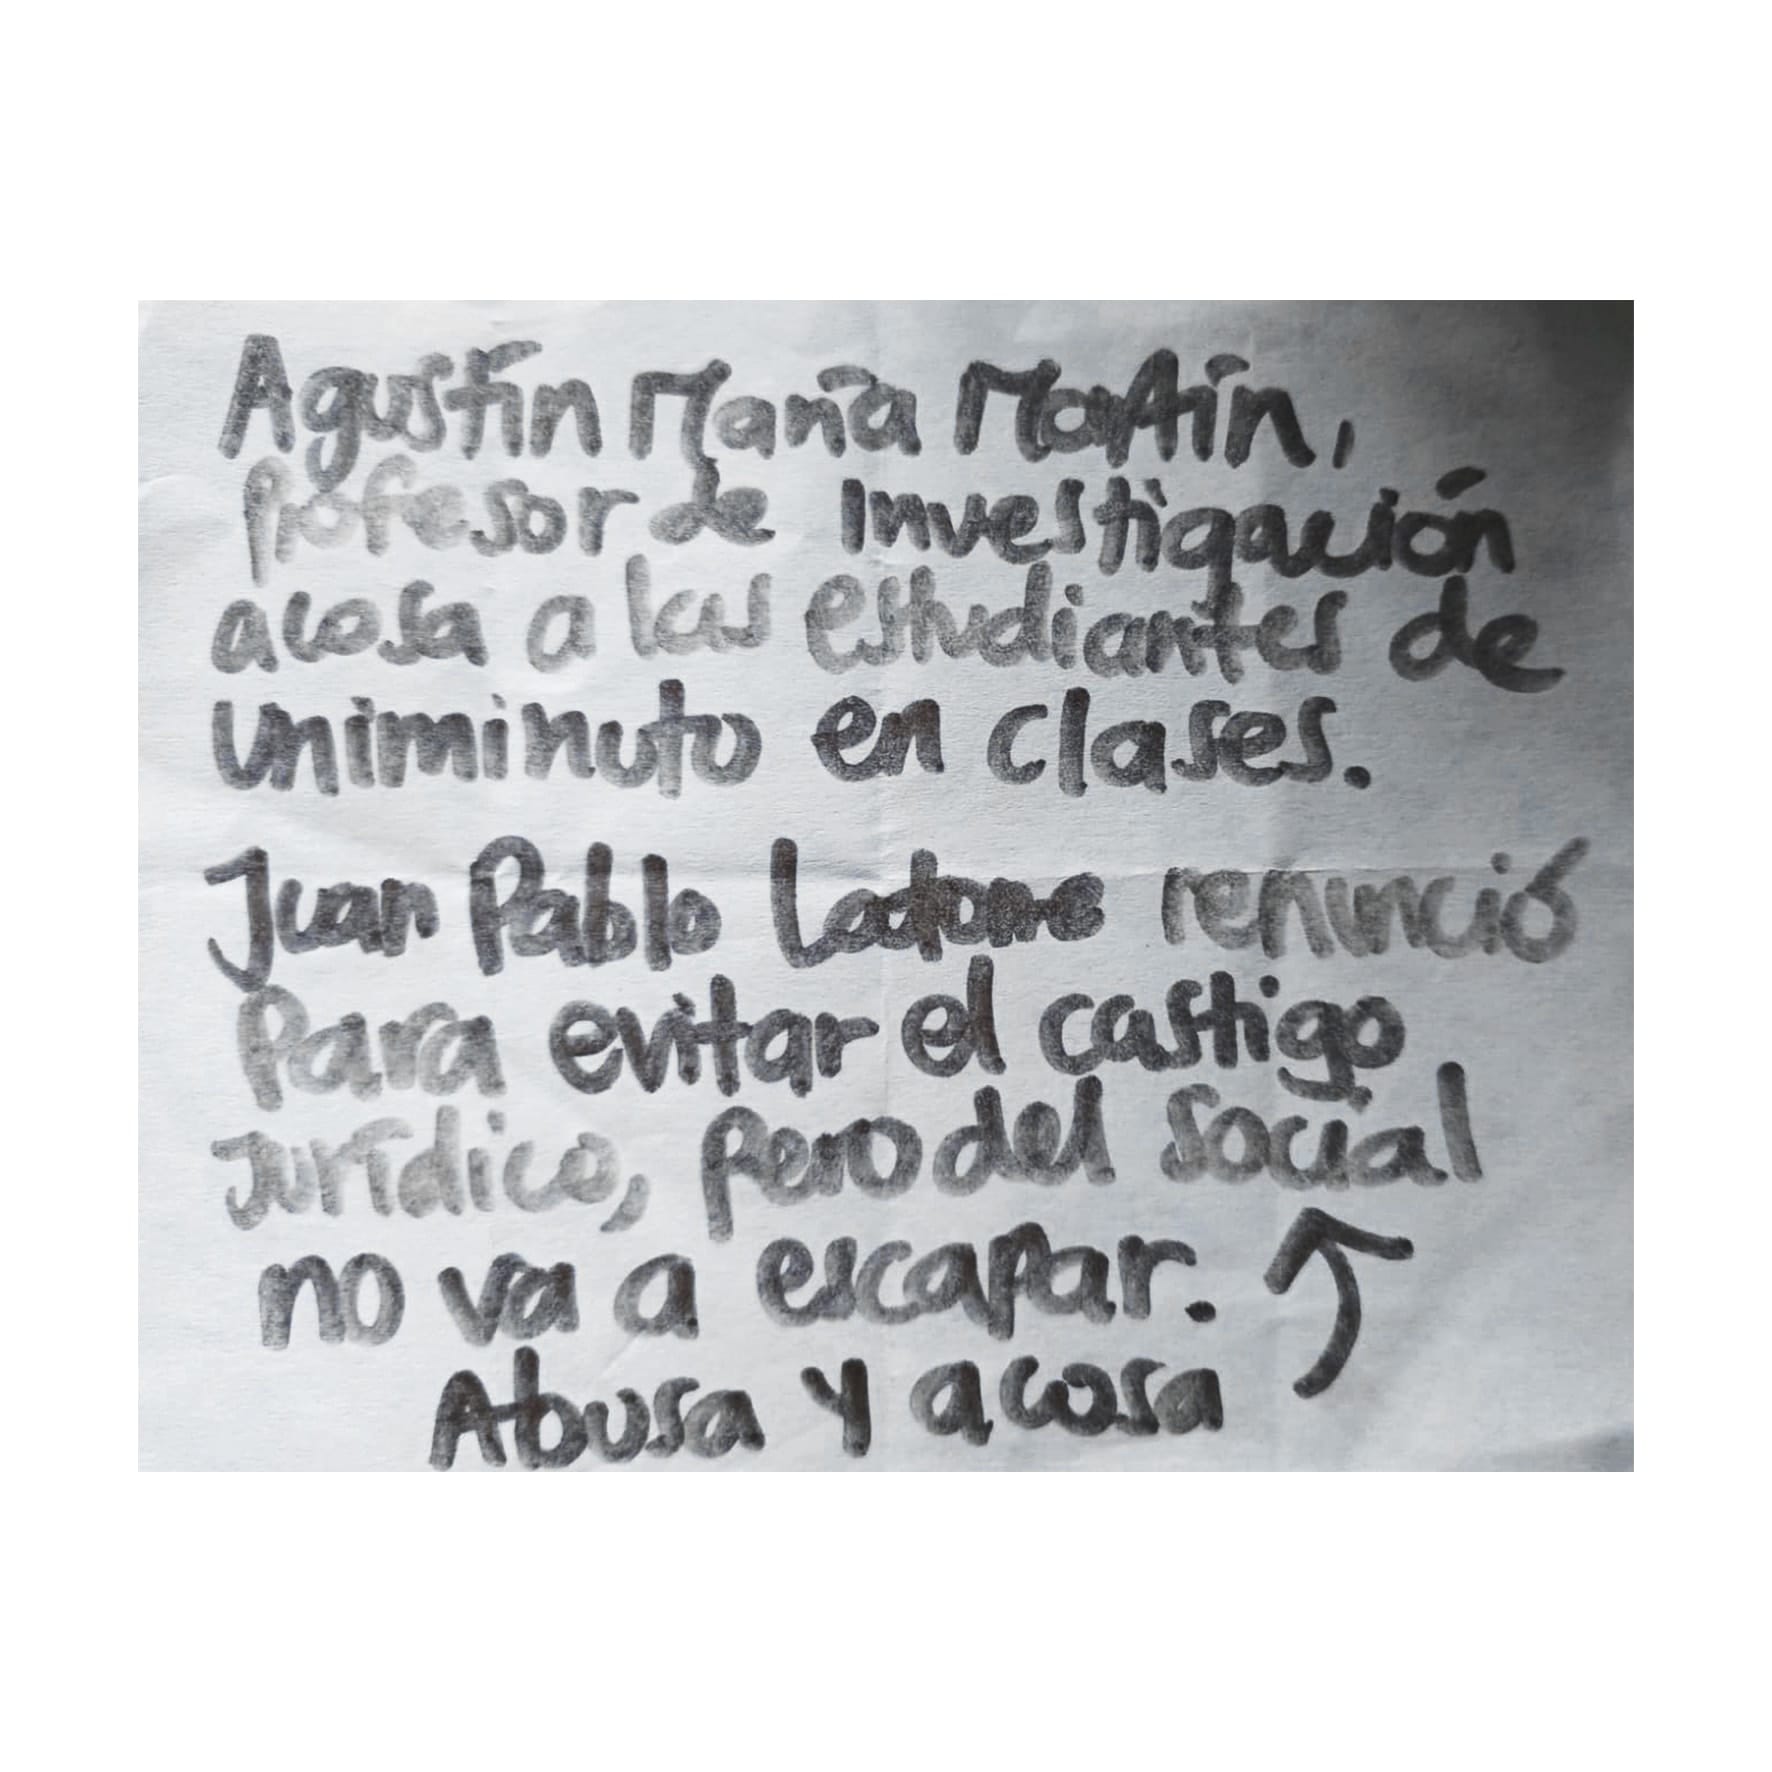 Agustín María Martín,
Profesor de Investigación
acosa a las estudiantes de
Uniminuto en clases.
Juan Pablo renunció
Para evitar el castigo
Jurídico, pero del social
no va a escapar.
Abusa y acosa